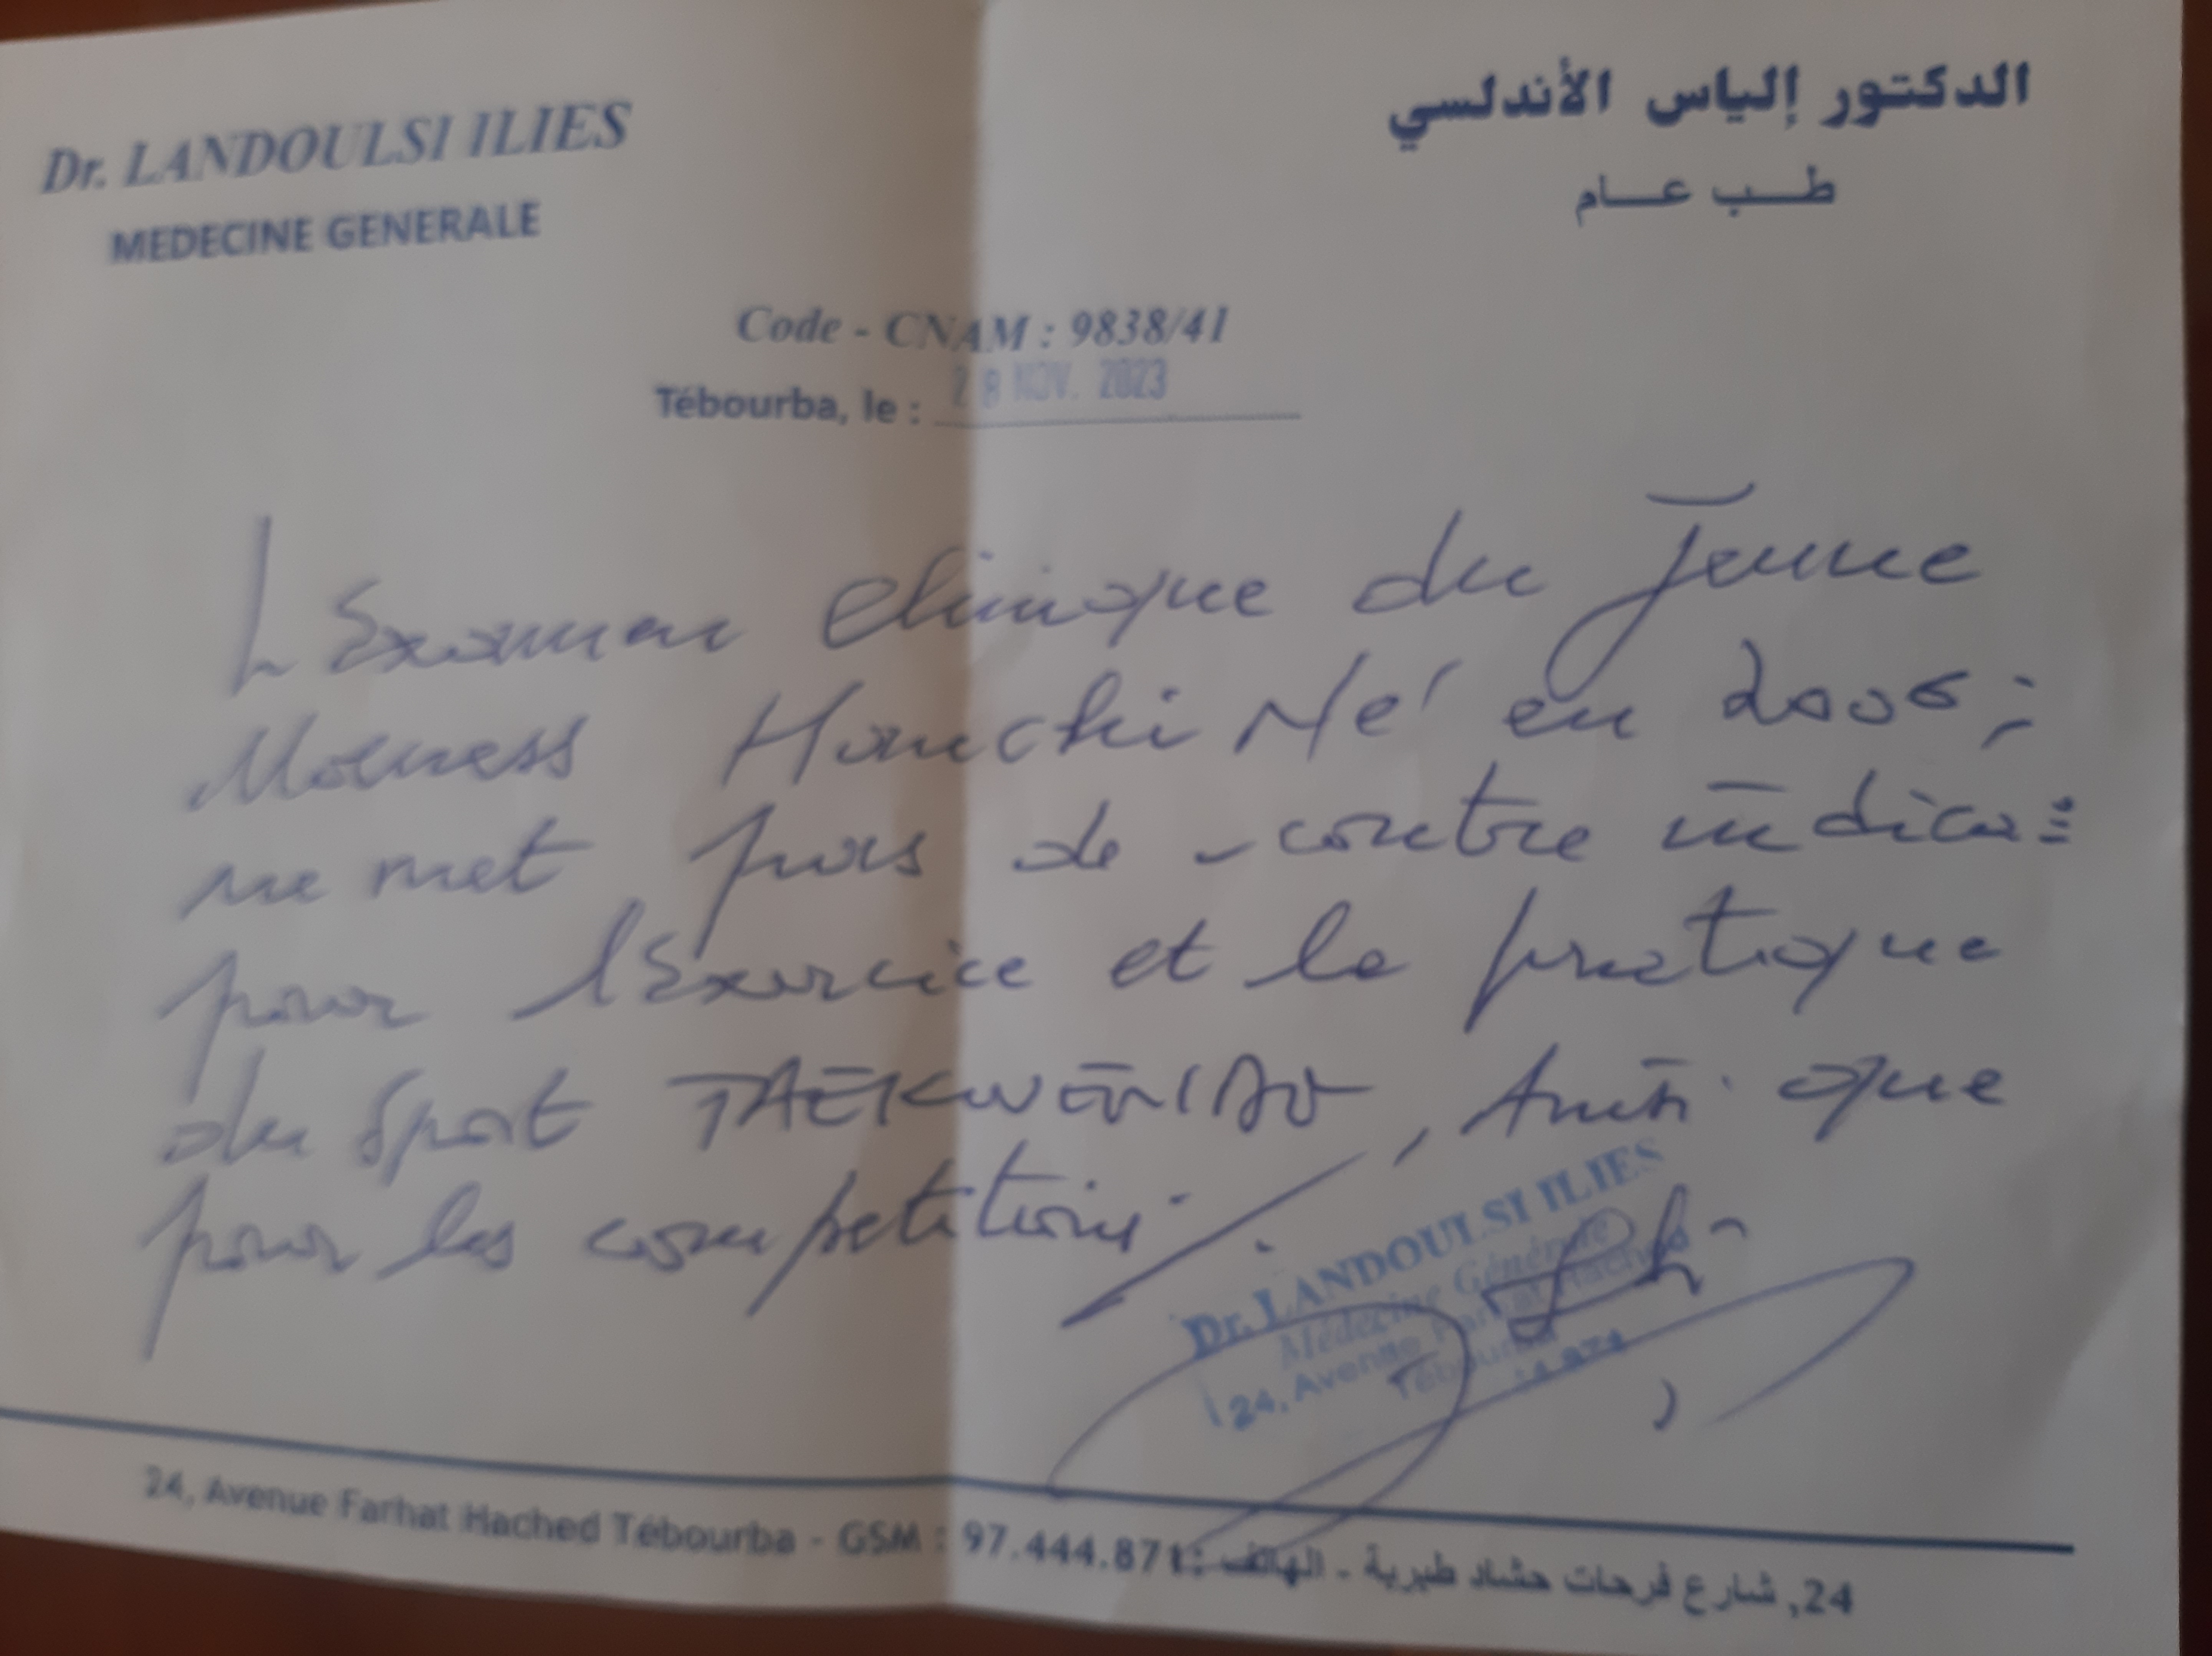 Dr. LANDOULSI ILIES
MEDECINE GENERALE
الدكتور إلياس الأندلسي
طب عام
Code - CNAM : 9838/41
Tébourba, le : 28 NOV. 2023
L'Examen clinique du Jeune
Mouness Houchi Né en 2006 ;
ne met pas de contre indica
pour l'Exercice et la pratique
du Sport TAEKWENDO, Ainsi que
pour les competitions.
Dr. LANDOULSI ILIES
Médecine Générale
24, Avenue Farhat Hached
Tébourba
24, Avenue Farhat Hached Tébourba - GSM : 97.444.871 : الهاتف - 24, شارع فرحات حشاد طبربة